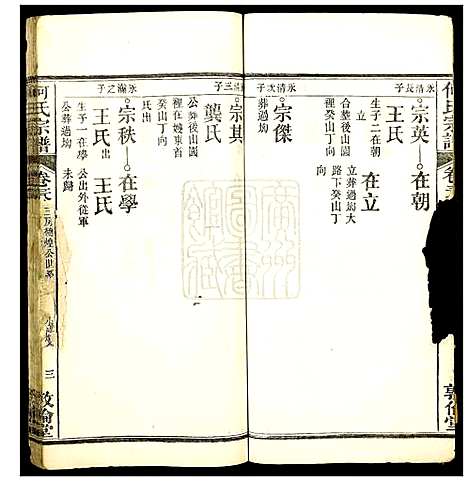 何氏宗譜
永清長子
宗英 在朝
王氏
生子二在朝
在立
合葬後山園
裡癸山丁向
在立
葬過坳大
路下癸山丁
向
永清次子
宗傑
葬過坳
清三子
宗其
公葬後山園
裡在嫂東首
癸山丁向
龔氏
氏出
永瀹之子
宗秩 在學
王氏出
生子一在學
公葬過坳
王氏
公出外從軍
未歸
何氏宗譜
三房
公世系
三
敦倫堂
敦倫堂